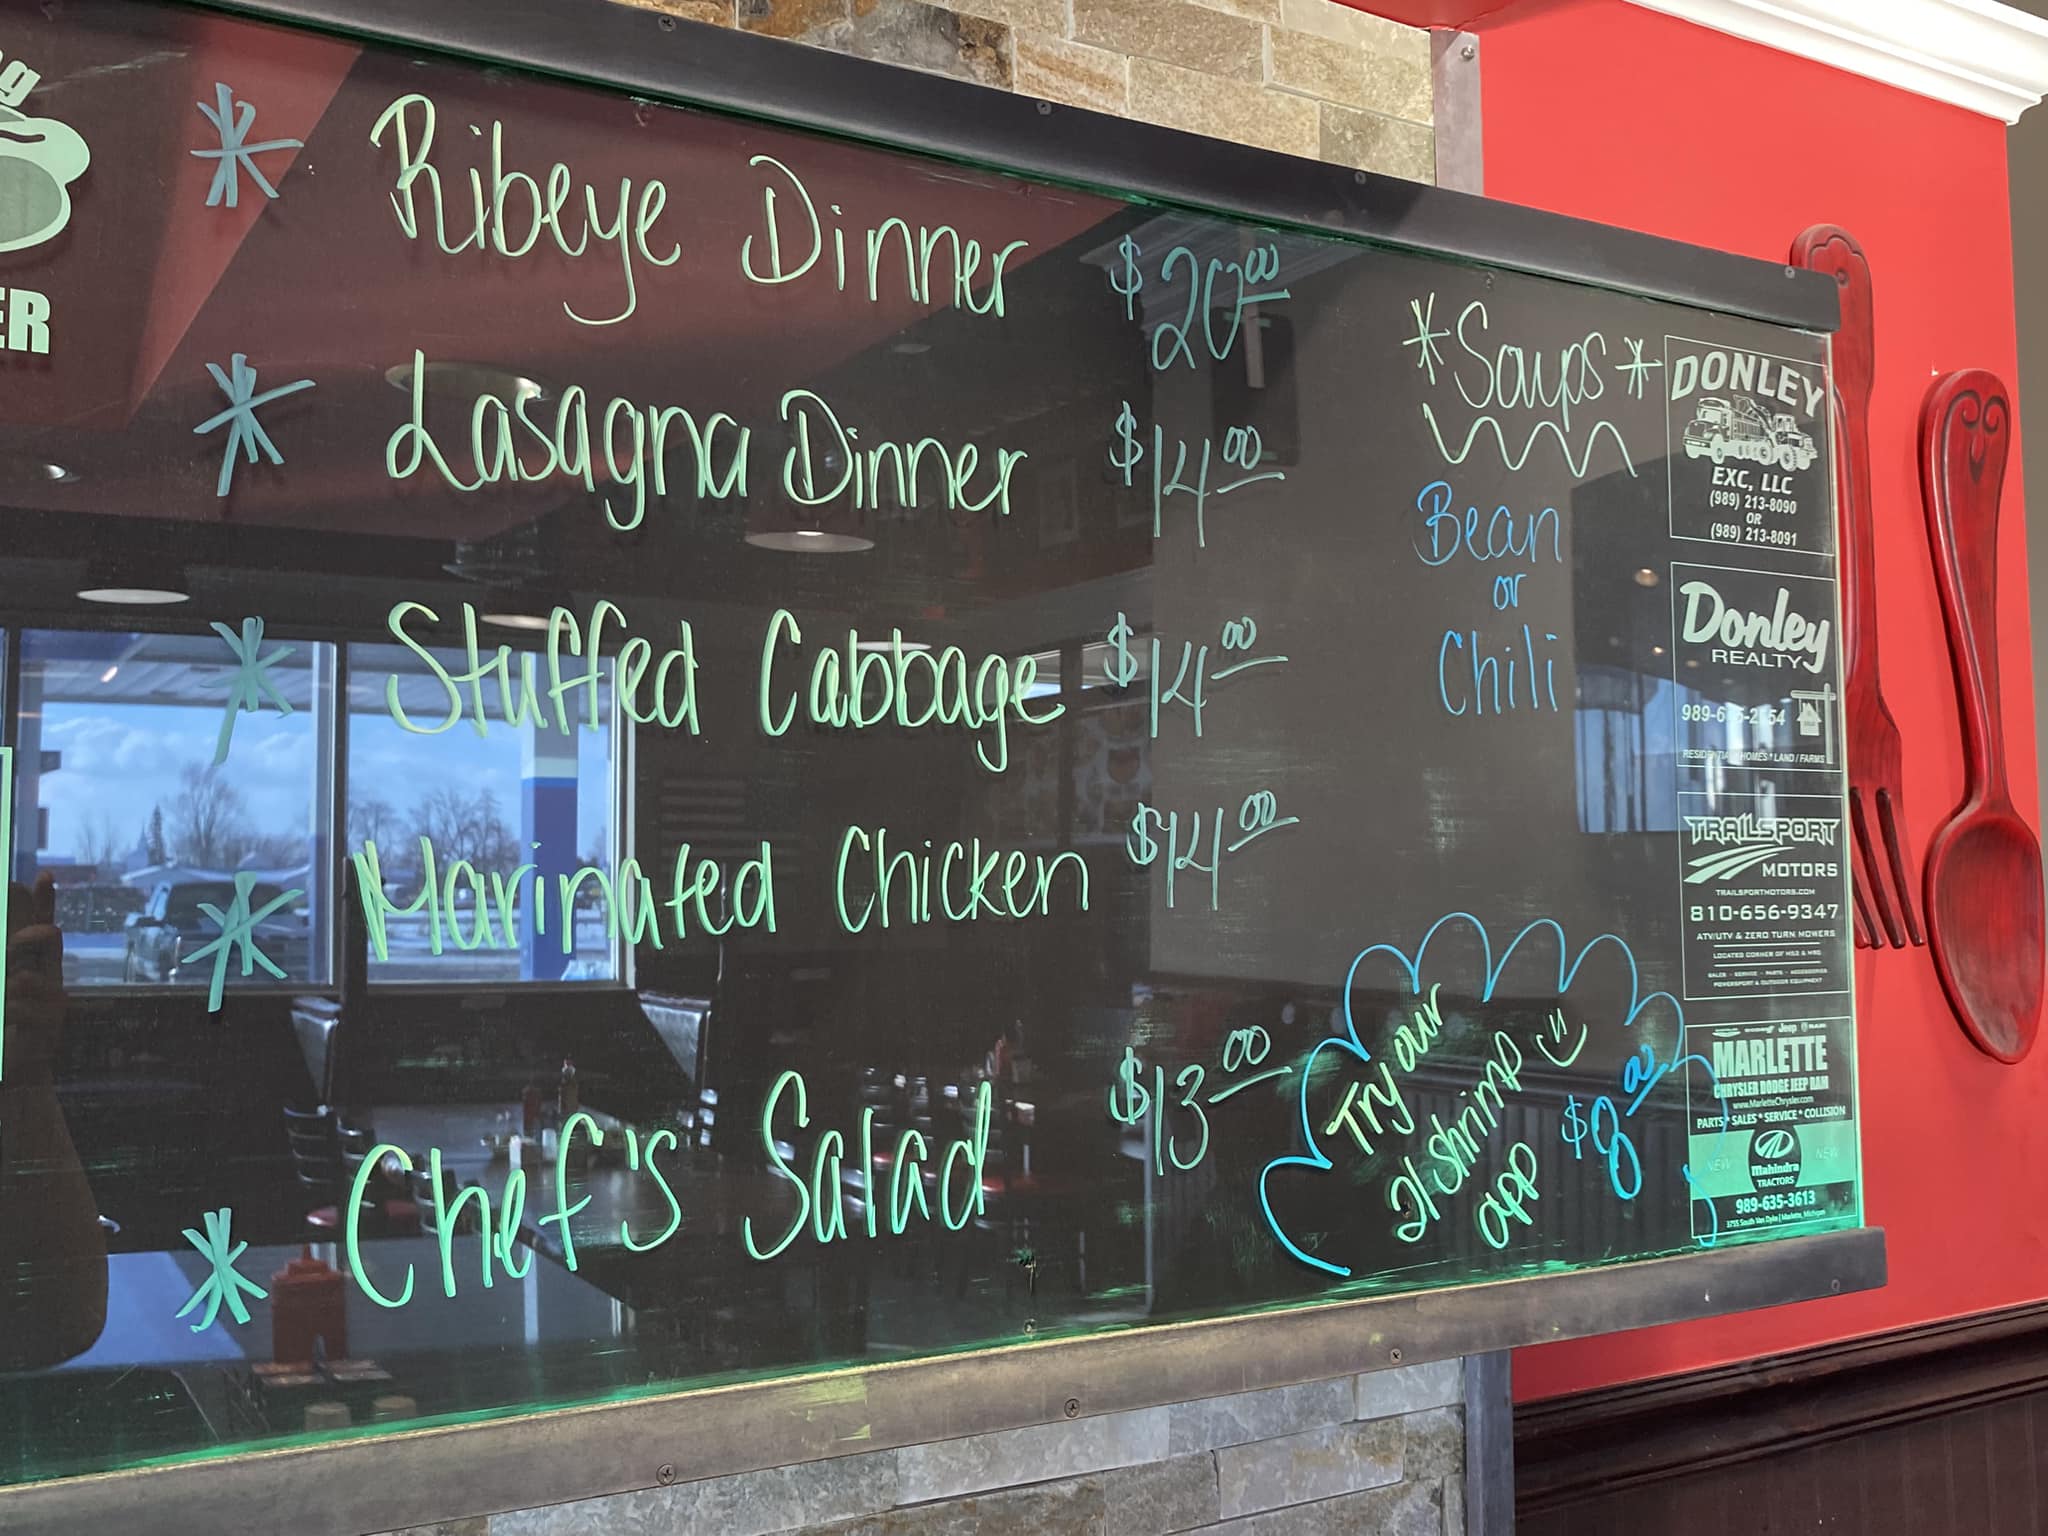 ER
* Ribeye Dinner $20.00
* Lasagna Dinner $14.00
* Stuffed Cabbage $14.00
* Marinated Chicken $14.00
* Chef's Salad $13.00
*Soups*
Bean
or
Chili
Try our
21 shrimp
app
$8.00
DONLEY
EXC, LLC
(989) 213-8090
OR
(989) 213-8091
Donley
REALTY
RESIDENTIAL HOMES * LAND / FARMS
TRAILSPORT
MOTORS
TRAILSPORTMOTORS.COM
810-656-9347
ATV/UTV & ZERO TURN MOWERS
LOCATED CORNER OF M53 & M90
SALES - SERVICE - PARTS - ACCESSORIES
POWERSPORT & OUTDOOR EQUIPMENT
CHRYSLER DODGE Jeep RAM
MARLETTE
CHRYSLER DODGE JEEP RAM
www.MarletteChrysler.com
PARTS * SALES * SERVICE * COLLISION
NEW Mahindra NEW
TRACTORS
989-635-3613
3755 South Van Dyke | Marlette, Michigan